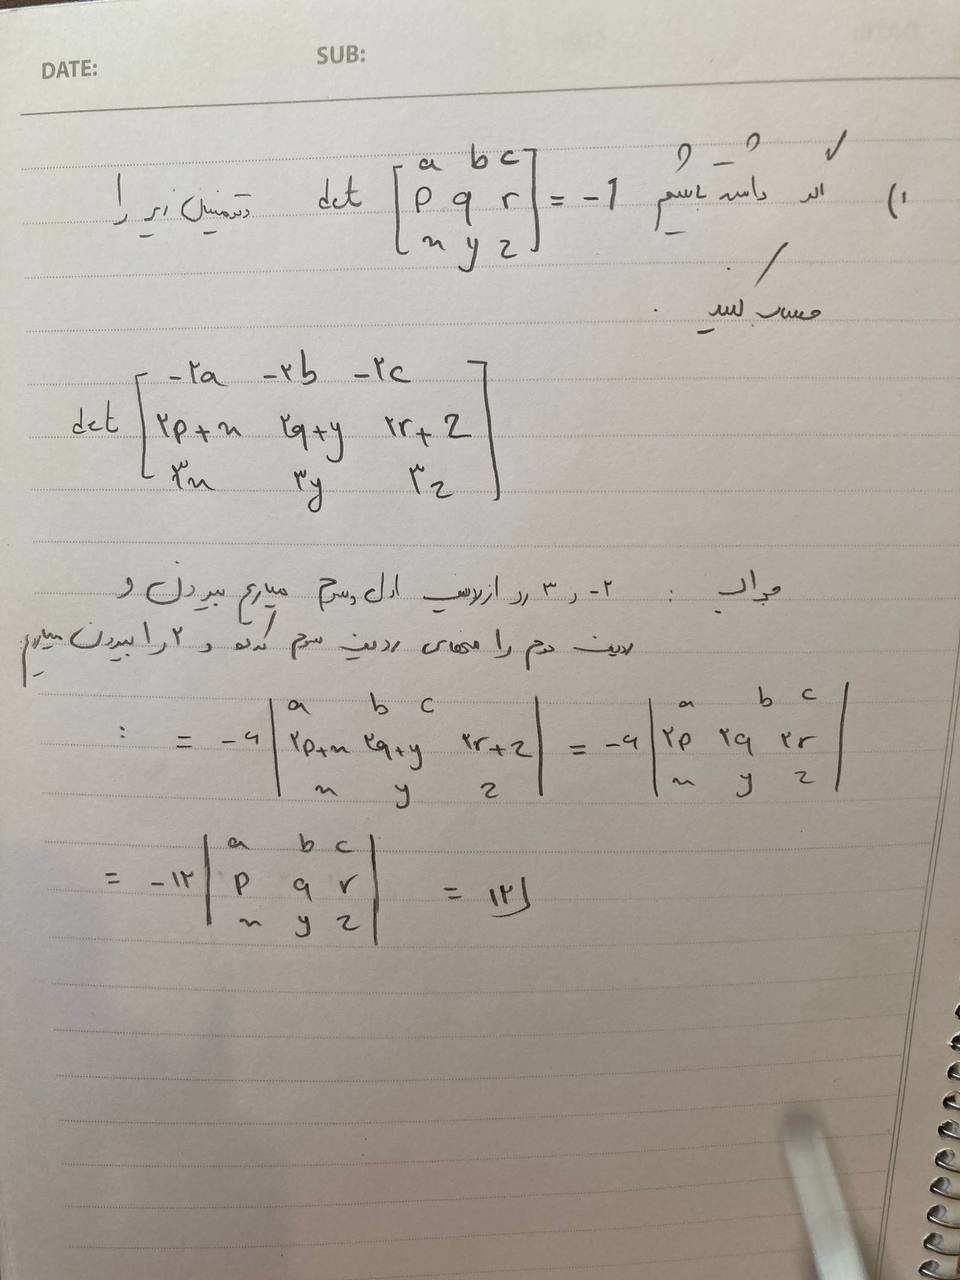 DATE: SUB:
۱) اگر داشته باشیم det [a b c
p q r
x y z] = -1 دترمینان زیر را
حساب کنید.
det [-۲a -۲b -۲c
۲p+x ۲q+y ۲r+z
۳x ۳y ۳z]
جواب : ۲- و ۳ رو از ردیف اول و سوم میاریم بیرون و
ردیف دوم را منهای ردیف سوم کرده و ۲ را بیرون میاریم
: = -۶ |a b c
۲p+x ۲q+y ۲r+z
x y z| = -۶ |a b c
۲p ۲q ۲r
x y z|
= -۱۲ |a b c
p q r
x y z| = ۱۲